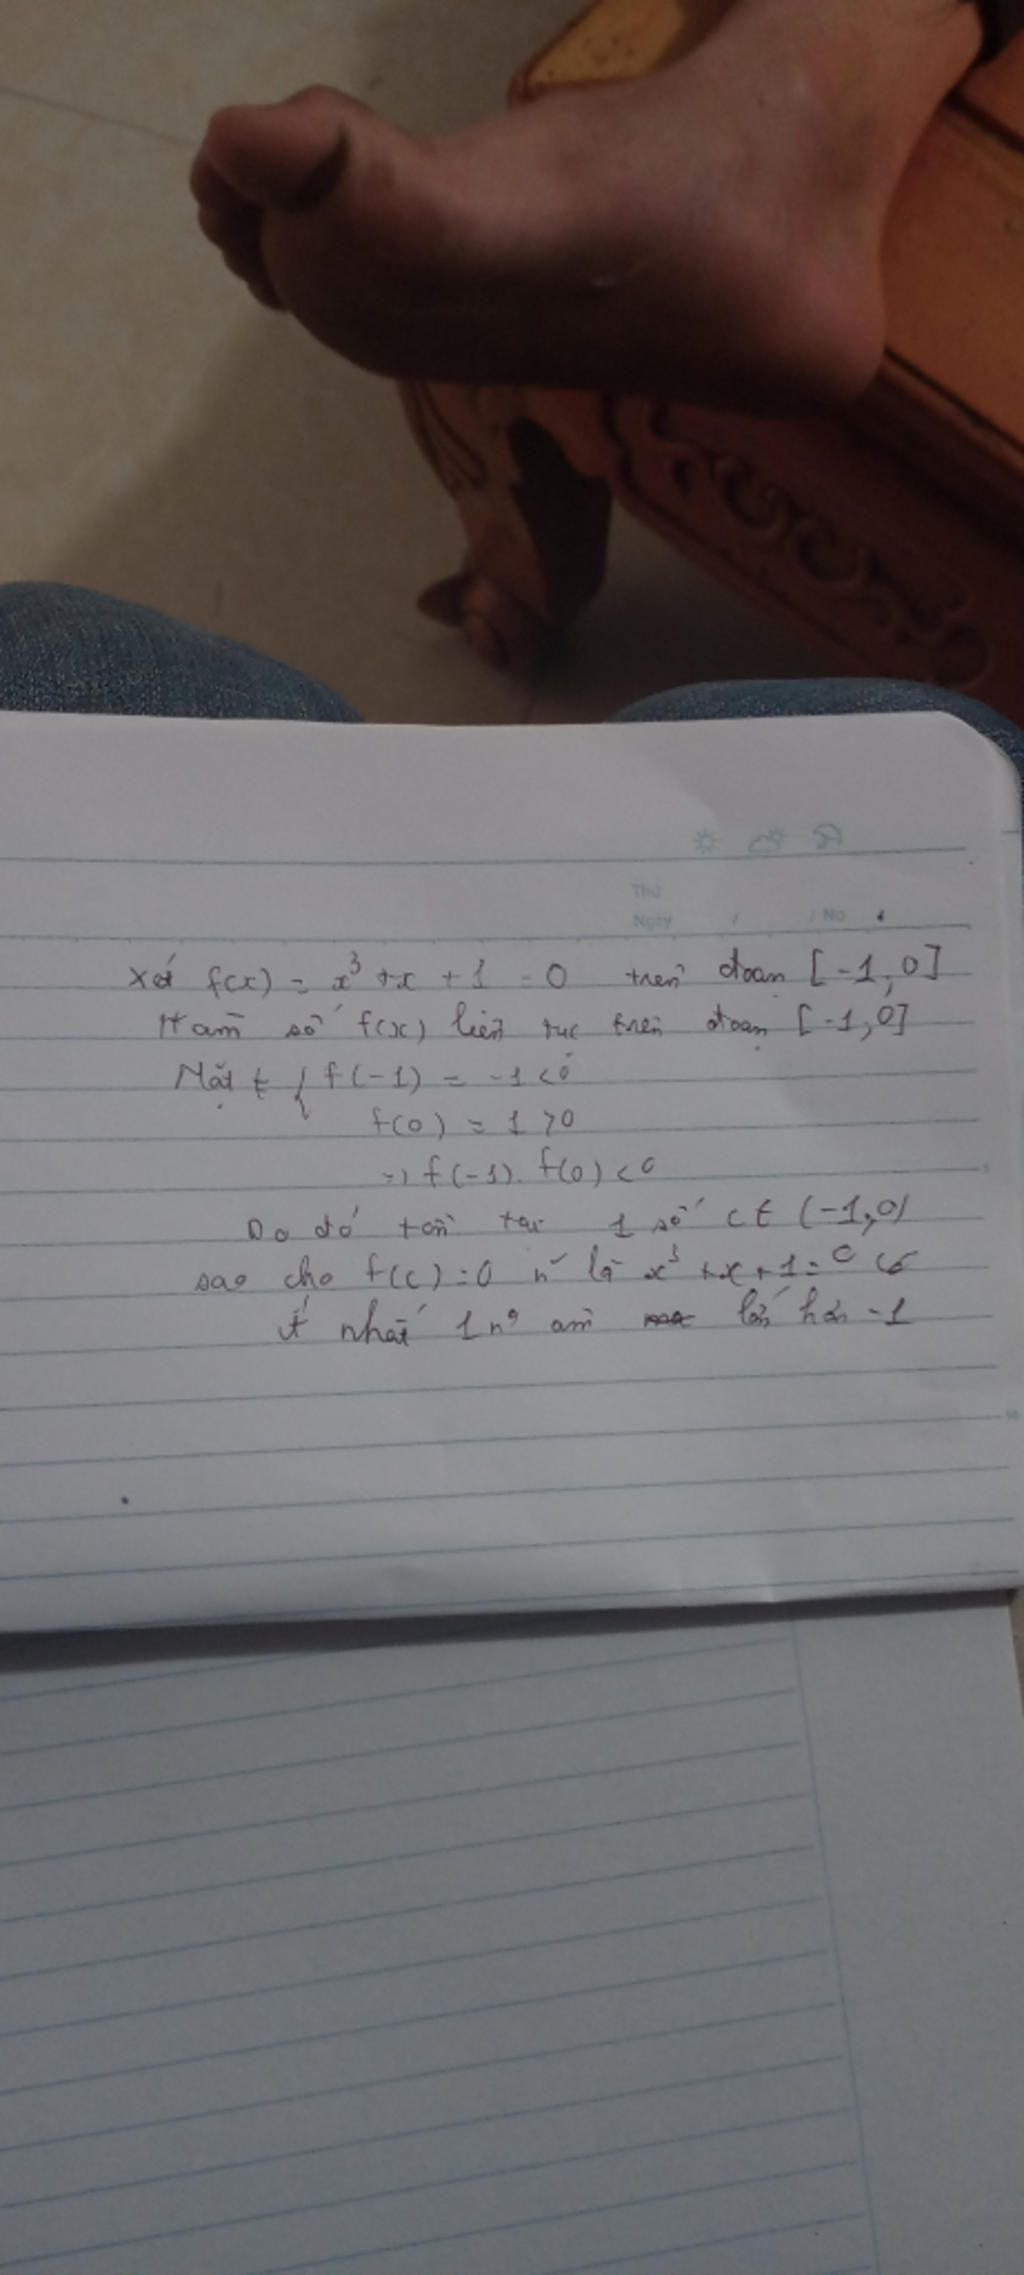 Thứ
Ngày / / No
Xét f(x) = x³ + x + 1 = 0 trên đoạn [-1,0]
Hàm số f(x) liên tục trên đoạn [-1,0]
Mặt ≠ { f(-1) = -1 < 0
f(0) = 1 > 0
=> f(-1). f(0) < 0
Do đó tồn tại 1 số c ∈ (-1,0)
sao cho f(c) = 0 n´ là x³ + x + 1 = 0 có
ít nhất 1 nº âm lớn hơn -1